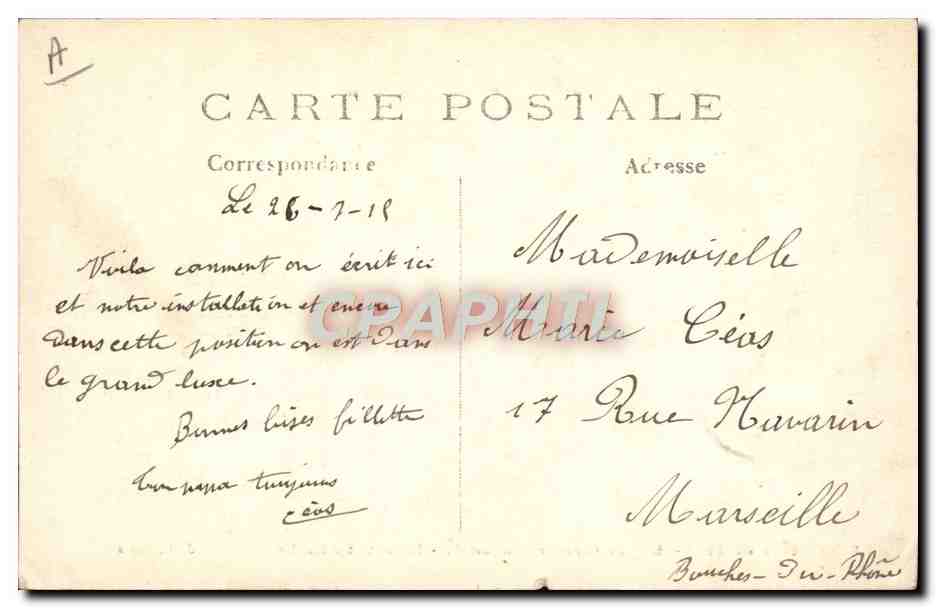 A
CARTE POSTALE
Correspondance
Adresse
Le 26-7-15
Voila comment on écrit ici
et notre installation et encore
dans cette position on est dans
le grand luxe.
Bonnes bises fillette
Ton papa toujours
Céas
Mademoiselle
Marie Céas
17 Rue Navarin
Marseille
Bouches-du-Rhône
CPAPHIL